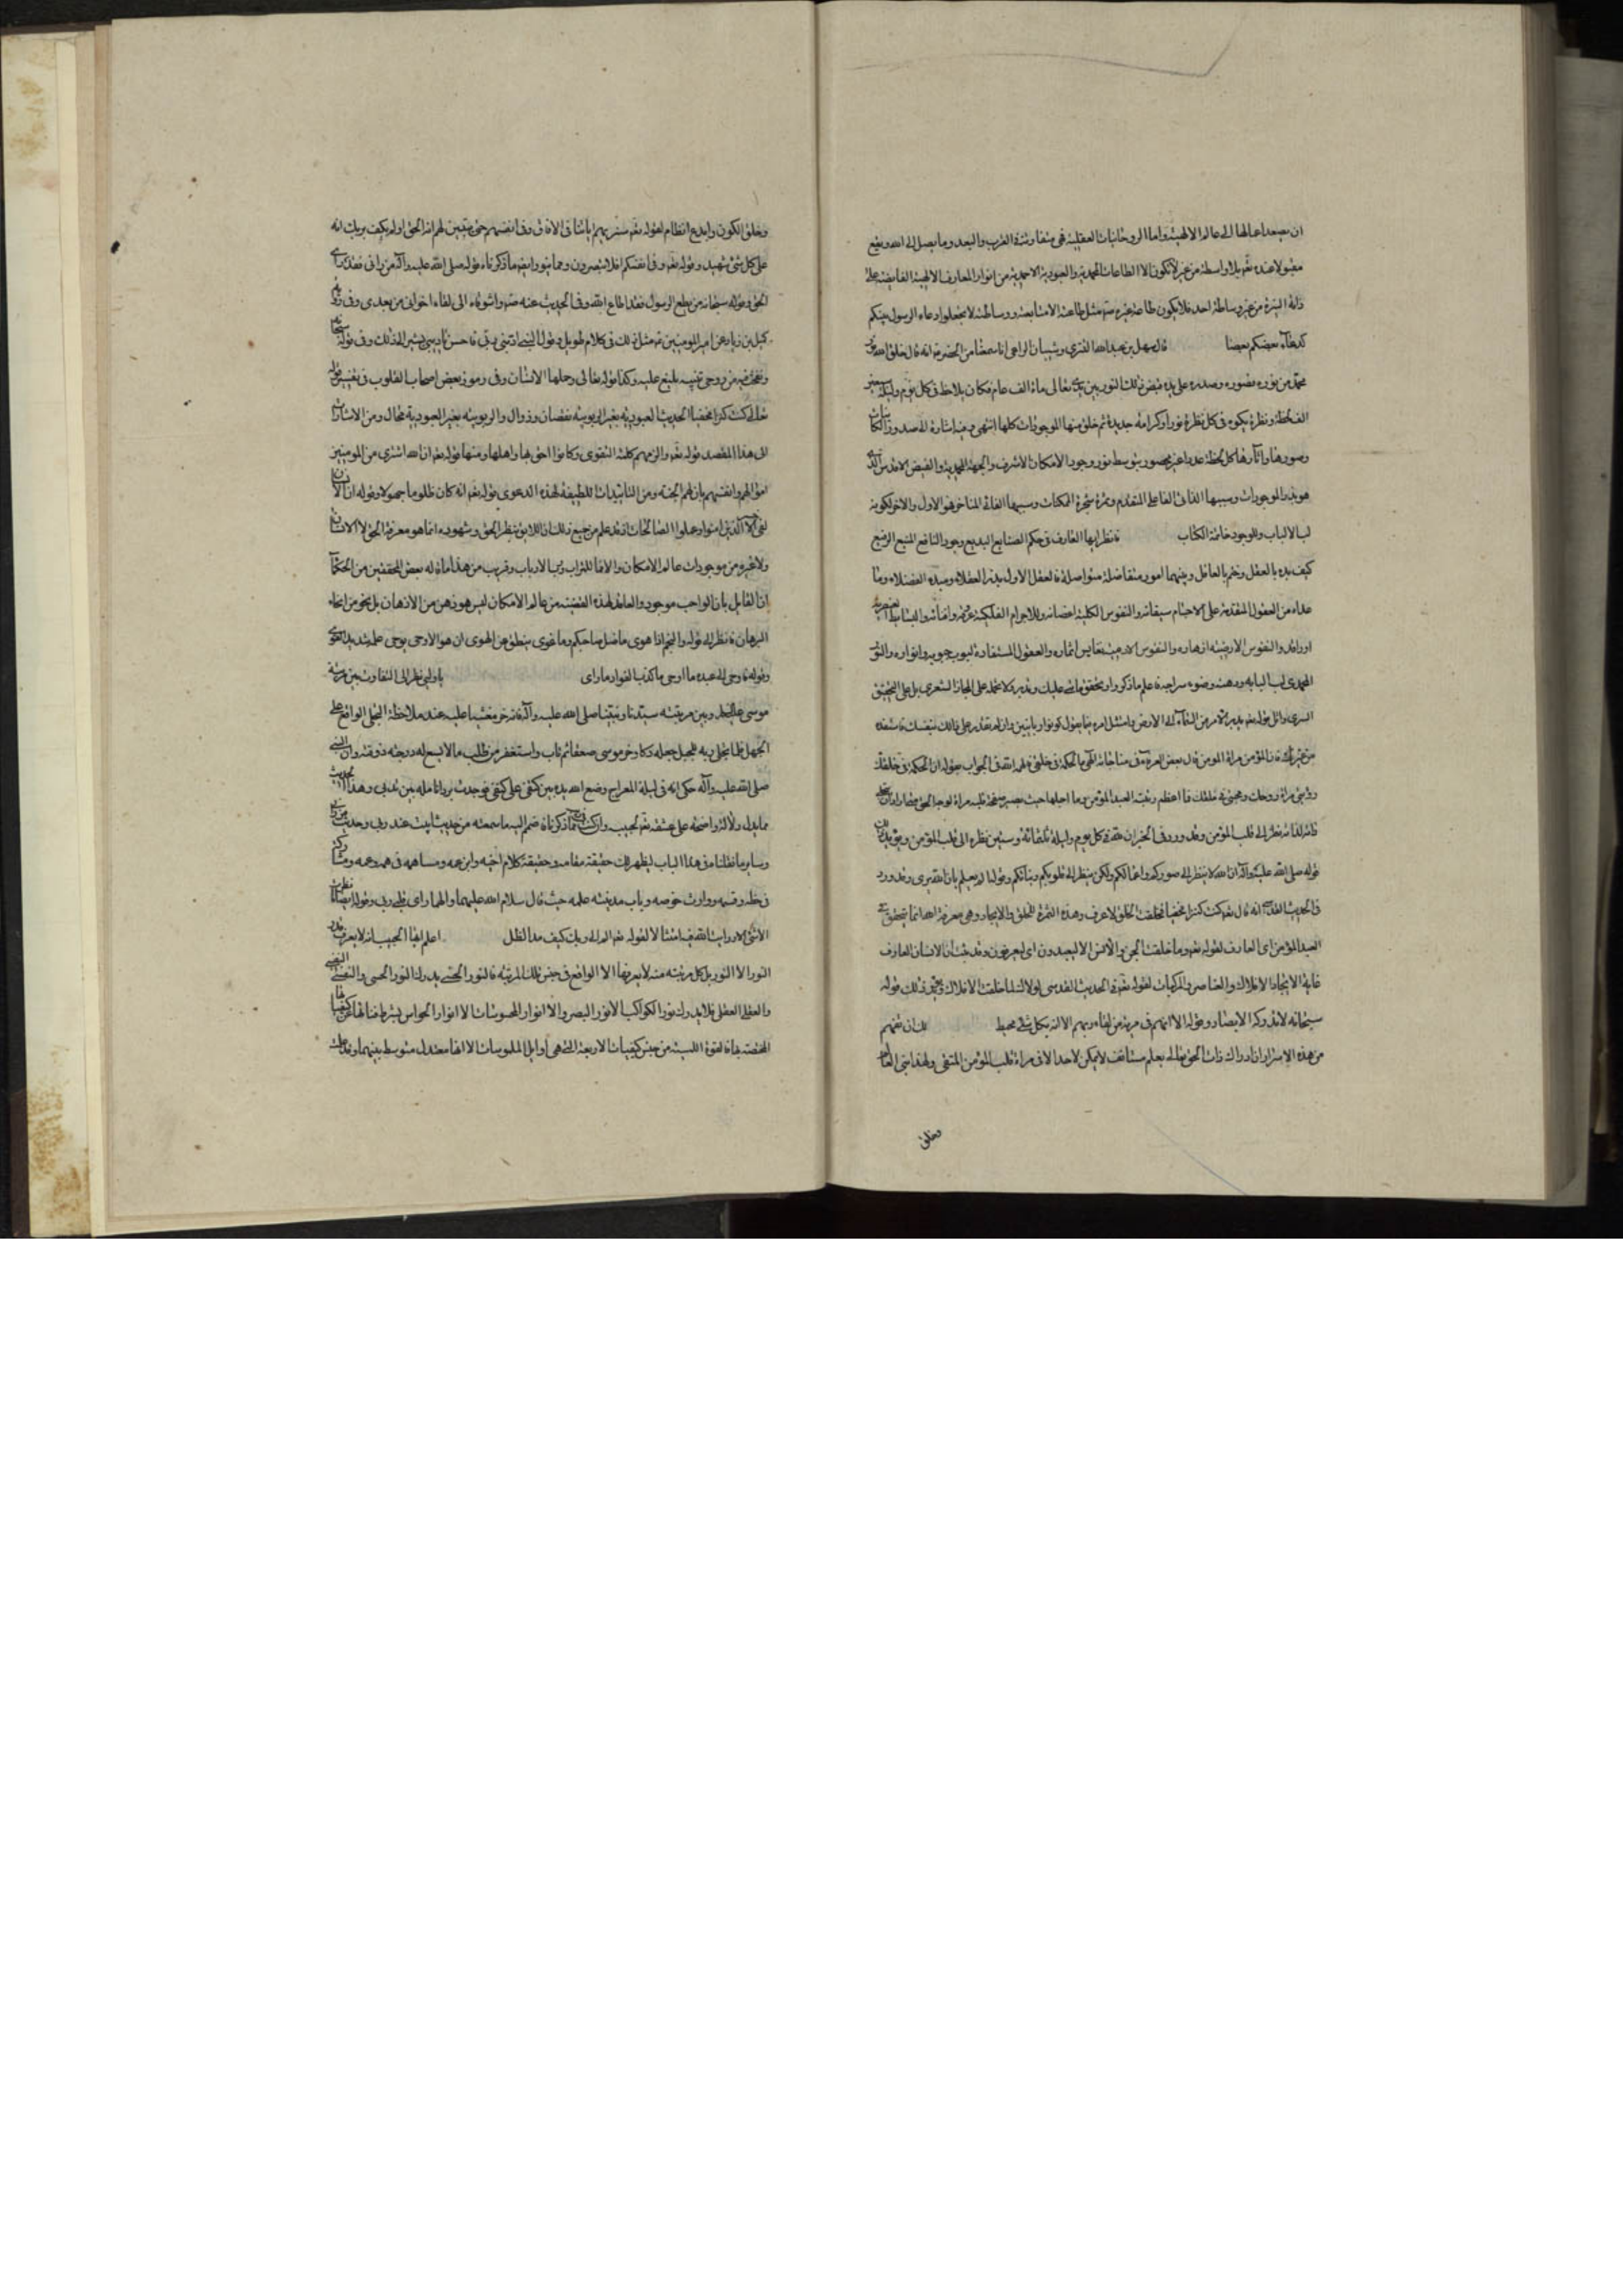 ان يصعد اعمالها الى عالم الالهية واما الروحانيات العقلية فهى متفاوتة القرب والبعد وما يصل الى الله ويقع
مقبولا عنده تعم بلا واسطة من غير لا يكون الا الطاعات المحمدية والعبودية الاحمدية من انوار المعارف الالهية الفايضة على
ذاته النيرة من غير وساطة احد فلا يكون طاعة غيره مثل طاعته الا متابعته ووساطته لا تجعلوا دعاء الرسول بينكم
كدعاء بعضكم بعضا قال سهل بن عبد الله التسترى وشيبان الراعى انا سمعنا من الخضر انه قال خلق الله نور
محمد من نوره فصوره وصدره على يده فبقى ذلك النور بين يدى الله تعالى مائة الف عام فكان يلاحظه فى كل يوم وليلة سبعين
الف لحظة ونظرة يكسوه فى كل نظرة نورا وكرامة جديدة ثم خلق منها الموجودات كلها انتهى وفيه اشارة الى صدور الكائنات
وصورها وآثارها كل لحظة عددا غير محصور بتوسط نور وجود الامكان الاشرف والجهة المحمدية والفيض الاقدس الذى
هو بذر الموجودات وسببها الفاعلى المتقدم وثمرة شجرة الممكنات وسببها الغائى المتاخر فهو الاول والاخر لكونه
لب الالباب وللوجود خاتمة الكتاب فانظر ايها العارف فى حكم الصانع البديع وجود النافع المنيع الرفيع
كيف بدء بالعقل وختم بالعاقل وبينهما امور متفاضلة متواصلة فالعقل الاول بذر العقلاء ومبدء الفضلاء وما
عداه من العقول المتقدمة على الاجسام سيقانه والنفوس الكلية اغصانه والاجرام الفلكية عروقه وافنانه والبسايط العنصرية
اوراقه والنفوس الارضية ازهاره والنفوس الادمية نفايس اثماره والعقول المستفادة لبوب حبوبه وانواره والنور
المحمدى لب لبابه ودهنه وضوء سراجه فاعلم ما ذكر وتحقق ما تلى عليك وتدبره ولا تحمله على المجاز الشعرى بل على التحقيق
السرى واتل قوله تعم يدبر الامر من السماء الى الارض وامتثل امره فيما يقول كونوا ربانيين وان لم تقدر على ذلك بنفسك فاستفده
من غيرك فان المؤمن مراة المؤمن قال بعض العرفاء فى مناجاته الهى ما الحكمة فى خلقى فالهمه الله فى الجواب بقوله ان الحكمة فى خلقك
رؤيتى مراة روحك ومحبتى فى قلبك فما اعظم رتبة العبد المؤمن وما اجلها حيث يصير صفحة قلبه مراة لوجه الحق متى اراد ان يتجلى
ذاته لذاته نظر الى قلب المؤمن وقد ورد فى الخبر ان لله فى كل يوم وليلة ثلثمائة وستين نظرة الى قلب المؤمن ويؤيد ذلك
قوله صلى الله عليه وآله ان الله لا ينظر الى صوركم واعمالكم ولكن ينظر الى قلوبكم ونياتكم وقوله الم يعلم بان الله يرى وقد ورد
فى الحديث القدسى انه قال تعم كنت كنزا مخفيا فخلقت الخلق لاعرف وهذه الثمرة للخلق والايجاد وهى معرفة الله انما يتحقق فى
العبد المؤمن اى العارف لقوله تعم وما خلقت الجن والانس الا ليعبدون اى ليعرفون وقد ثبت ان الانسان العارف
غاية الايجاد الافلاك والعناصر والمركبات لقوله تعم فى الحديث القدسى لولاك لما خلقت الافلاك ويحقق ذلك قوله
سبحانه لا تدركه الابصار وقوله الا انهم فى مرية من لقاء ربهم الا انه بكل شئ محيط لك ان تفهم
من هذه الاسرار ان ادراك ذات الحق تعالى بعلم مستانف لا يمكن لاحد الا فى مراة قلب المؤمن المتقى ولهذا بنى العالم
وخلق
وخلق الكون وابدع النظام لقوله تعم سنريهم اياتنا فى الافاق وفى انفسهم حتى يتبين لهم انه الحق اولم يكف بربك انه
على كل شئ شهيد وقوله تعم وفى انفسكم افلا تبصرون ومما ينور ايضا ما ذكرناه قوله صلى الله عليه وآله من رانى فقد راى
الحق وقوله سبحانه من يطع الرسول فقد اطاع الله وفى الحديث عنه ص واشوقاه الى لقاء اخوانى من بعدى وفى رواية
كميل بن زياد عن امير المؤمنين ع مثل ذلك فى كلام طويل وقول النبى ادبنى ربى فاحسن تاديبى يشير الى ذلك وفى قوله سبحانه
ونفخت فيه من روحى تنبيه بليغ عليه وكذا قوله تعالى وحملها الانسان وفى رموز بعض اصحاب القلوب فى تفسير قوله
تعالى كنت كنزا مخفيا الحديث العبودية بغير الربوبية نقصان وزوال والربوبية بغير العبودية محال ومن الاشارات
الى هذا المقصد قوله تعم والزمهم كلمة التقوى وكانوا احق بها واهلها ومنها قوله تعم ان الله اشترى من المومنين
اموالهم وانفسهم بان لهم الجنة ومن التاييدات اللطيفة لهذه الدعوى قوله تعم انه كان ظلوما جهولا وقوله ان الانسان
لفى خسر الا الذين امنوا وعملوا الصالحات فقد علم من جميع ذلك ان اللايق بنظر الحق وشهوده انما هو معرفة الحق لا الانسان
ولا غيره من موجودات عالم الامكان والا فما للتراب ورب الارباب وقريب من هذا ما قاله بعض المحققين من الحكماء
ان القايل بان الواجب موجود والعاقد لهذه القضية من عالم الامكان ليس هو ذهن من الاذهان بل نحو من انحاء
البرهان فانظر الى قوله والنجم اذا هوى ما ضل صاحبكم وما غوى وما ينطق عن الهوى ان هو الا وحى يوحى علمه شديد القوى
وقوله فاوحى الى عبده ما اوحى ما كذب الفؤاد ما راى يا ولى نظر الى التفاوت بين مرتبة
موسى عليه السلم وبين مرتبة سيدنا ونبينا صلى الله عليه وآله فانه خر مغشيا عليه عند ملاحظة التجلى الواقع على
الجبل فلما تجلى ربه للجبل جعله دكا وخر موسى صعقا ثم تاب واستغفر من طلب ما لا يسع له درجته ذوقه وان النبى
صلى الله عليه وآله حكى انه فى ليلة المعراج وضع الله يده بين كتفى على كتفى فوجدت برد انامله بين ثديى وهذا الحديث
مما يدل دلالة واضحة على عشقه تعم لحبيبه وان كنت فى ريب مما ذكرناه ضم اليه ما سمعته من حديث ابيت عند ربى وحديث من رانى
وساير ما نقلنا من هذا الباب ليظهر لك حقيقة مقامه وحقيقة كلام اخيه وابن عمه ومساهمه فى همه وغمه ومشاركه
فى حظه وقسمه ووارث حوضه وباب مدينة علمه حيث قال سلام الله عليهما والهما راى قلبى ربى وقوله ايضا ما نظرت
الى شئ الا ورايت الله فيه امتثالا لقوله تعم الم تر الى ربك كيف مد الظل اعلم ايها الحبيب انه لا يعرف قدر
النور الا النور بل كل مرتبة منه لا يعرفها الا الواقع فى جنس تلك المرتبة فالنور الحسى يدرك النور الحسى والنفسى النفسى
والعقلى العقلى فلا يدرك نور الكواكب الا نور البصر والا انوار المحسوسات الا انوار الحواس بشرط فنائها عن كيفياتها
المختصة بها فالقوة اللمسية من جنس كيفيات الاربعة التى هى اوايل الملموسات الا انها معتدل متوسط بينهما وقد علمت